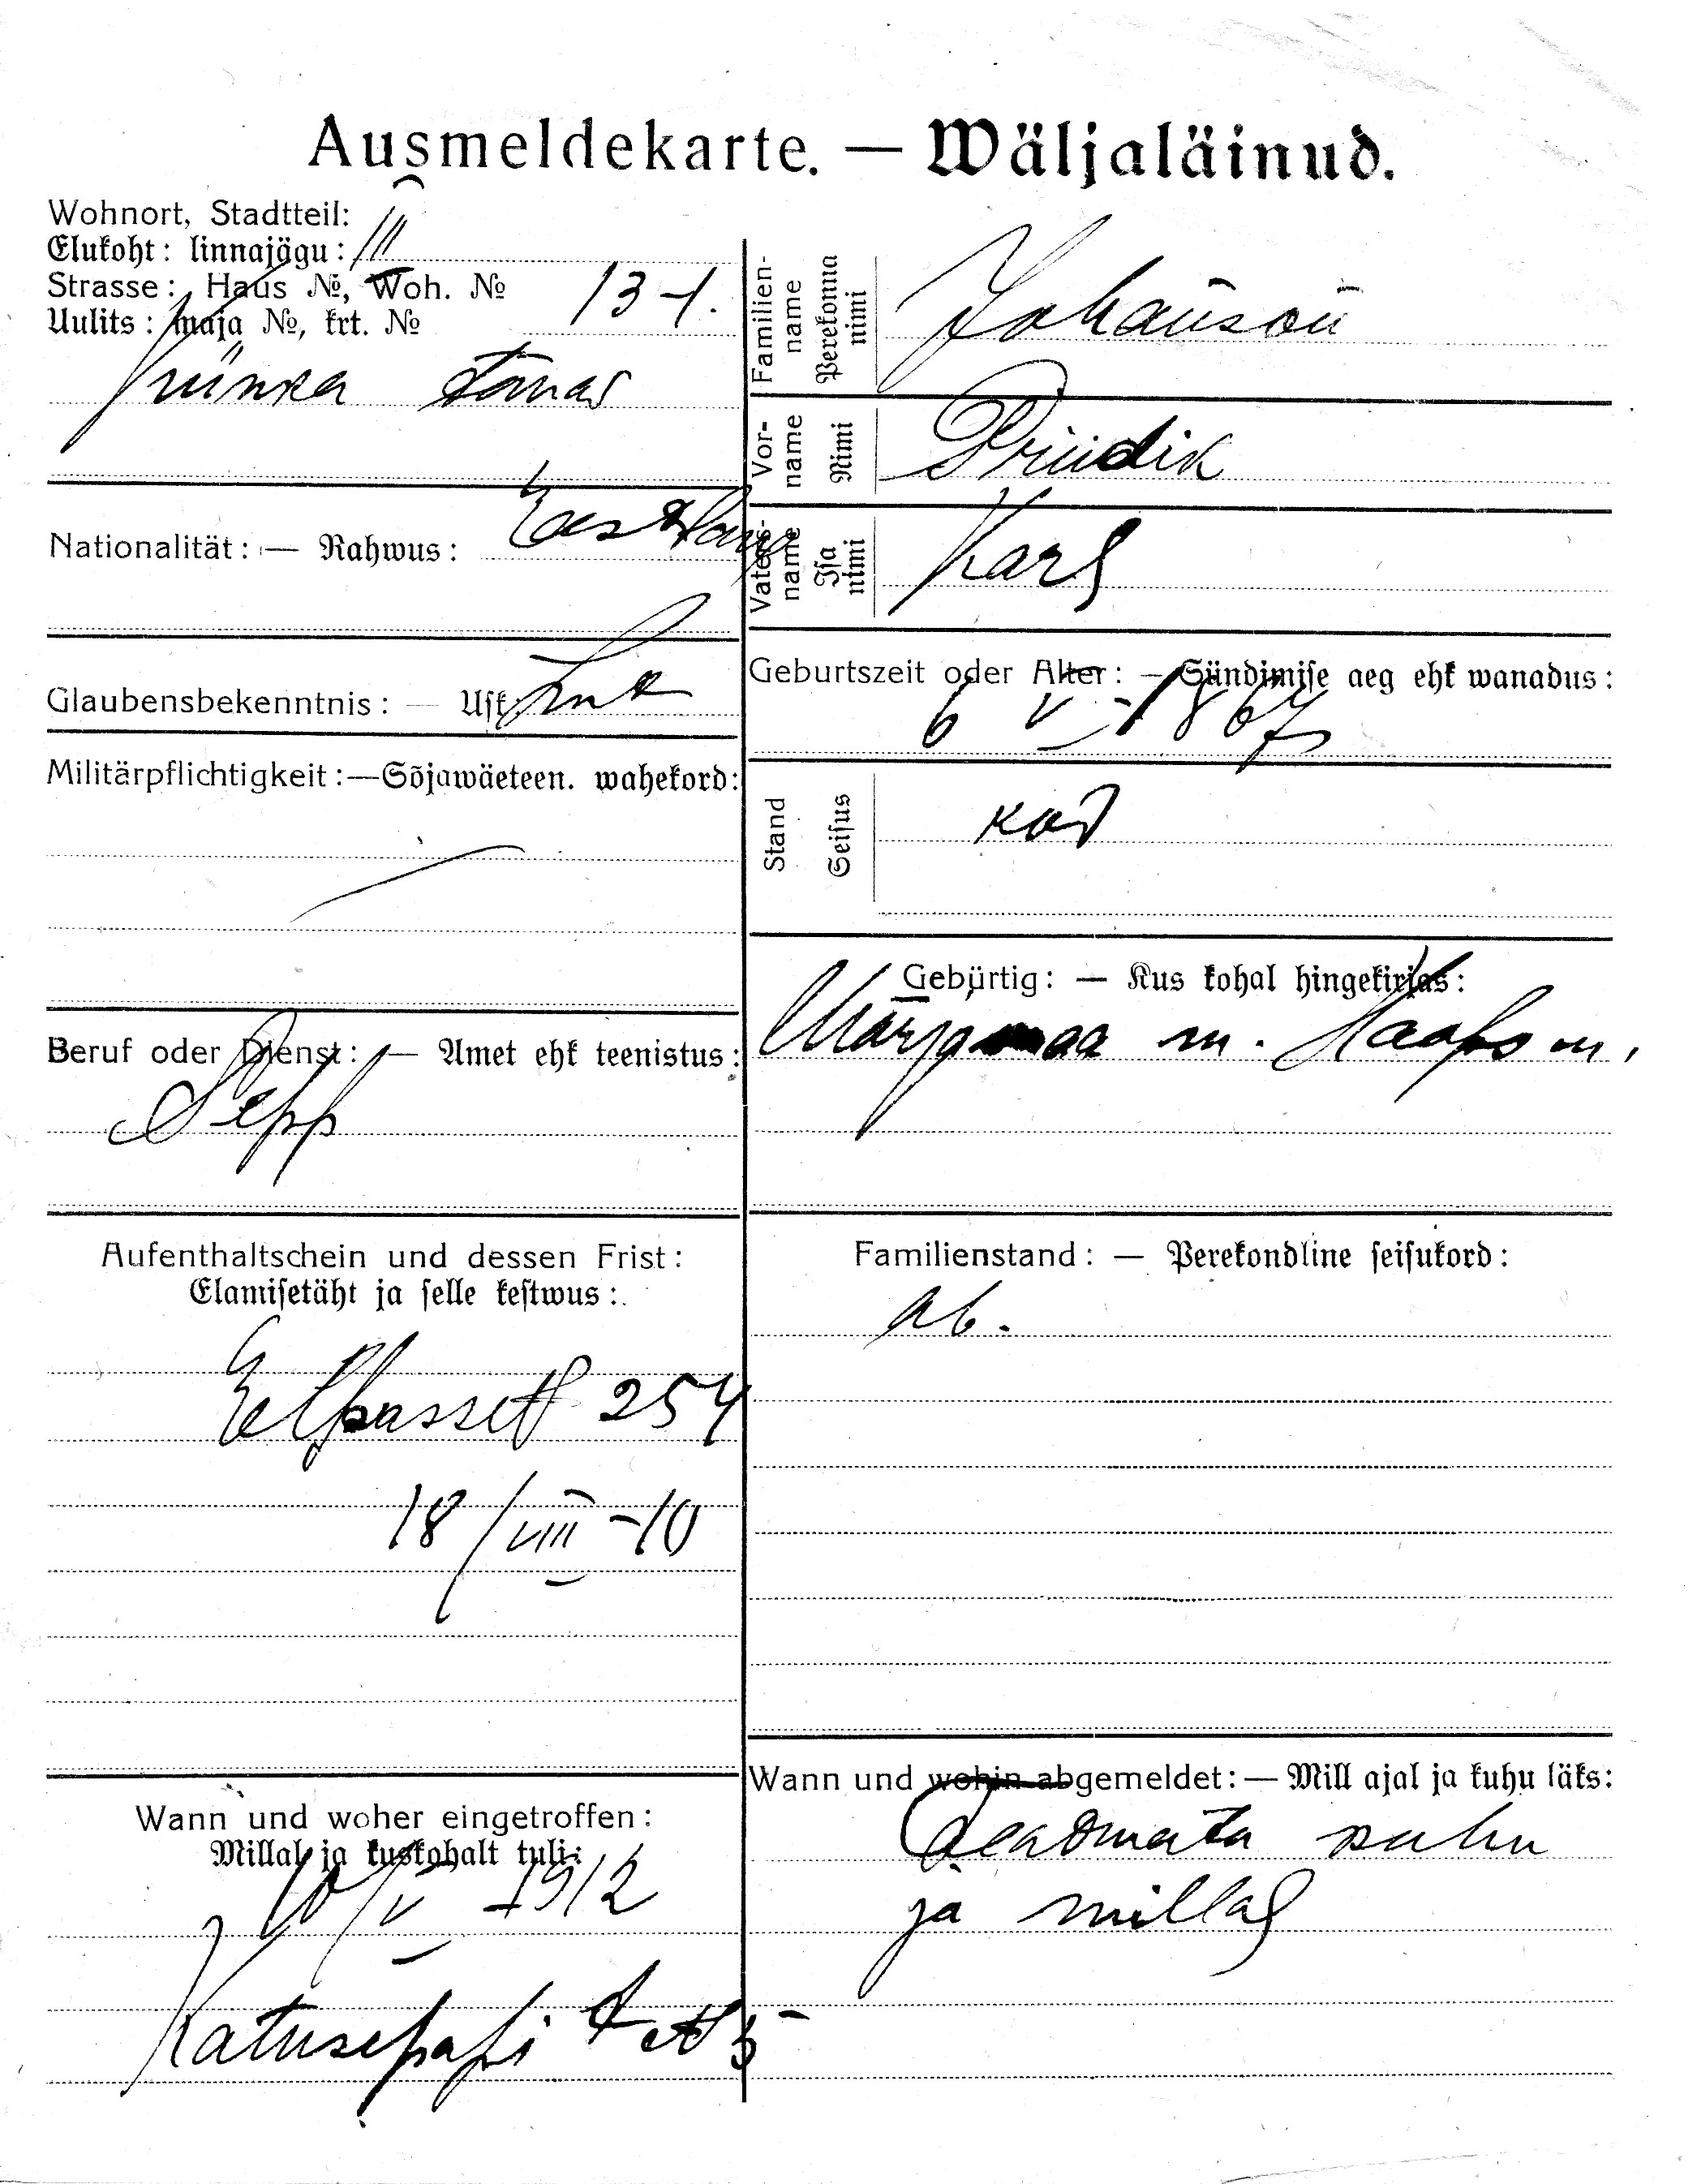 Ausmeldekarte. — Wäljaläinud.
Wohnort, Stadtteil:
Elukoht: linnajägu: III
Strasse: Haus №, Woh. №
Uulits: maja №, krt. № 13-1.
tänas
Nationalität: — Rahwus:
Glaubensbekenntnis: — Usk: Lut
Militärpflichtigkeit:—Sõjawäeteen. wahekord:
Beruf oder Dienst: — Amet ehk teenistus:
Sepp
Aufenthaltschein und dessen Frist:
Elamisetäht ja selle kestwus:
Elpassett 254
18/VIII -10
Wann und woher eingetroffen:
Millal ja kuskohalt tuli:
10/V 1912
Katusepapi t № 5
Familien-name Perekonna nimi Johanson
Vor-name Nimi Priidik
Vaters-name Isa nimi Karl
Geburtszeit oder Alter: — Sündimise aeg ehk wanadus:
6 V -1867
Stand Seisus
Gebürtig: — Kus kohal hingekirjas:
Märjamaa m. Haaps m.
Familienstand: — Perekondline seisukord:
ab.
Wann und wohin abgemeldet: — Mill ajal ja kuhu läks:
Teadmata kuhu
ja millal